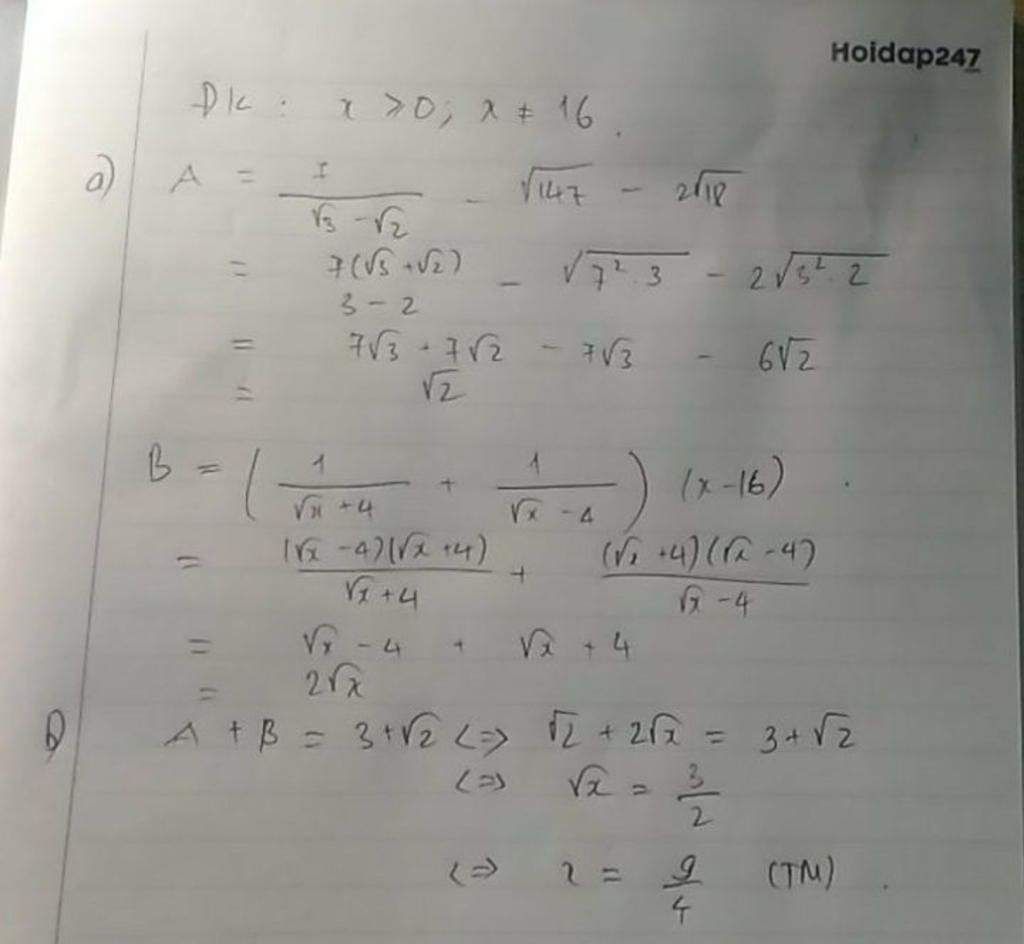 Hoidap247
ĐK : x ≥ 0; x ≠ 16.
a) A = 7/(√3 - √2) - √147 - 2√18
= 7(√3 + √2)/(3 - 2) - √(7².3) - 2√(3².2)
= 7√3 + 7√2 - 7√3 - 6√2
= √2
B = (1/(√x + 4) + 1/(√x - 4)) (x - 16).
= (√x - 4)(√x + 4)/(√x + 4) + (√x + 4)(√x - 4)/(√x - 4)
= √x - 4 + √x + 4
= 2√x
b) A + B = 3 + √2 <=> √2 + 2√x = 3 + √2
<=> √x = 3/2
<=> x = 9/4 (TM).